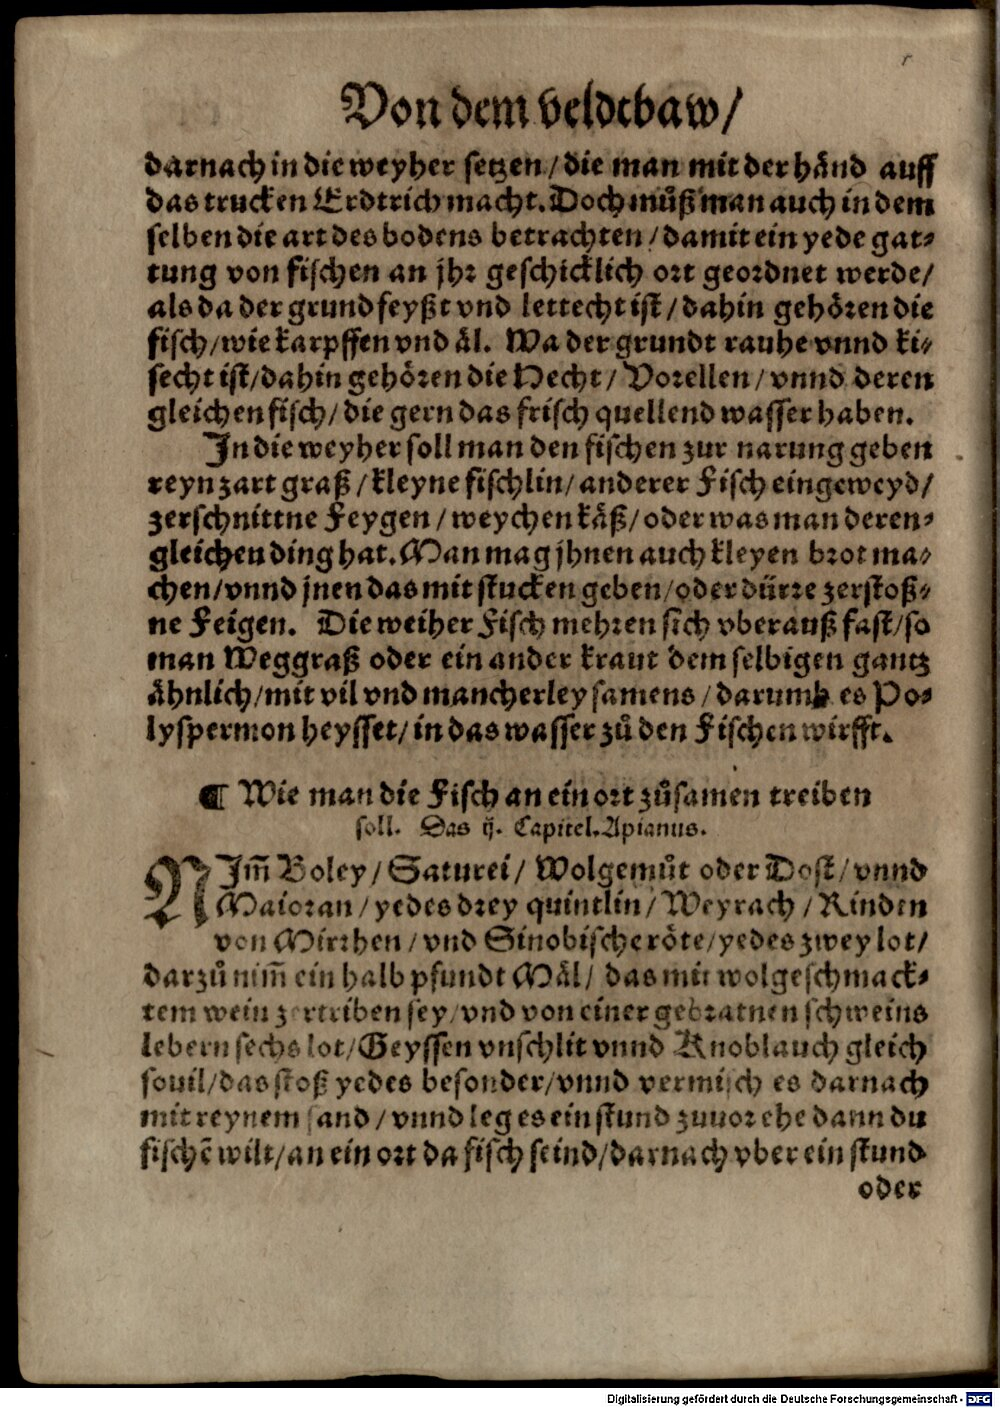 Von dem veldtbaw/
darnach in die weyher setzen/die man mit der händ auff
das trucken Erdtrich macht. Doch můß man auch in dem
selben die art des bodens betrachten/damit ein yede gat⸗
tung von fischen an jhr geschicklich ort geordnet werde/
als da der grund feyßt vnd lettecht ist/dahin gehören die
fisch/wie karpffen vnd äl. Wa der grundt rauhe vnnd ki⸗
secht ist/dahin gehören die Hecht/Vorellen/vnnd deren
gleichen fisch/die gern das frisch quellend wasser haben.
In die weyher soll man den fischen zur narung geben
reyn zart graß/kleyne fischlin/anderer Fisch eingeweyd/
zerschnittne Feygen/weychen käß/oder was man deren⸗
gleichen ding hat. Man mag jhnen auch kleyen brot ma⸗
chen/vnnd jnen das mit stucken geben/oder dürre zerstoß⸗
ne Feigen. Die weiher Fisch mehren sich vberauß fast/so
man Weggraß oder ein ander kraut dem selbigen gantz
ähnlich/mit vil vnd mancherley samens/darumb es Po⸗
lyspermon heysset/in das wasser zů den Fischen wirfft.
¶ Wie man die Fisch an ein ort zůsamen treiben
soll. Das ij. Capitel. Apianus.
NJm̃ Boley/Saturei/Wolgemůt oder Dost/vnnd
Maioran/yedes drey quintlin/Weyrach/Rinden
von Mirrhen/vnd Sinobische röte/yedes zwey lot/
darzů nim̃ ein halb pfundt Mäl/das mit wolgeschmack⸗
tem wein zertriben sey/vnd von einer gebratnen schweins
lebern sechs lot/Geyssen vnschlit vnnd Knoblauch gleich
souil/das stoß yedes besonder/vnnd vermisch es darnach
mit reynem sand/vnnd leg es ein stund zuuor ehe dann du
fischẽ wilt/an ein ort da fisch seind/darnach vber ein stund
oder
Digitalisierung gefördert durch die Deutsche Forschungsgemeinschaft - DFG